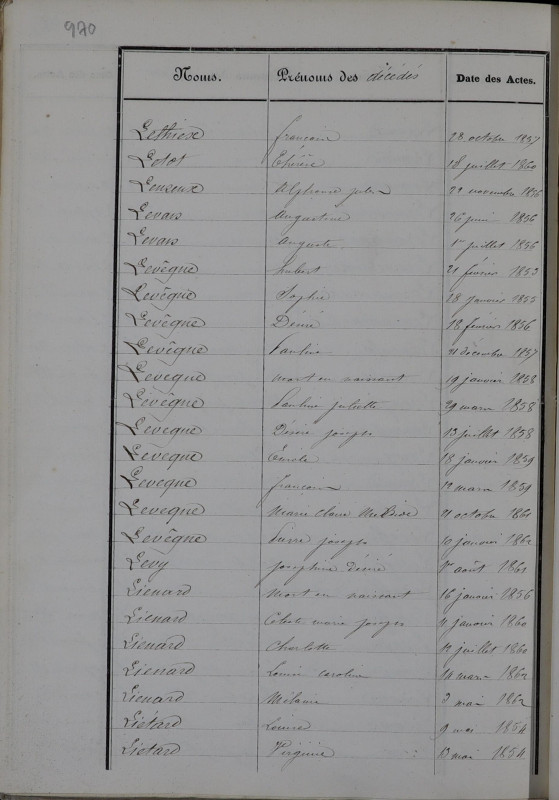 970
Noms. Prénoms des décédés Date des Actes.
Lethiese françois 28 octobre 1857
Lotot 18 juillet 1860
Leuseux Alphonse jules 22 novembre 1856
Levars Augustine 26 juin 1856
Levars Auguste 1er juillet 1856
Levêque hubert 21 février 1853
Levêque Sophie 28 janvier 1855
Levêque Désiré 18 février 1856
Levêque Pauline 21 décembre 1857
Levêque mort en naissant 19 janvier 1858
Levêque Pauline juliette 29 mars 1858
Levêque Désiré joseph 13 juillet 1858
Levêque Emile 18 janvier 1859
Leveque françois 12 mars 1859
Leveque Marie Claire 21 octobre 1861
Levêque Pierre joseph 10 janvier 1862
Levy josephine désiré 1er août 1861
Lienard mort en naissant 16 janvier 1856
Liénard Céleste marie joseph 4 janvier 1860
Lienard Charlotte 12 juillet 1861
Lienard Louise caroline 14 mars 1862
Lienard Mélanie 3 mai 1862
Liétard Louise 9 mai 1854
Lietard Virginie 13 mai 1854